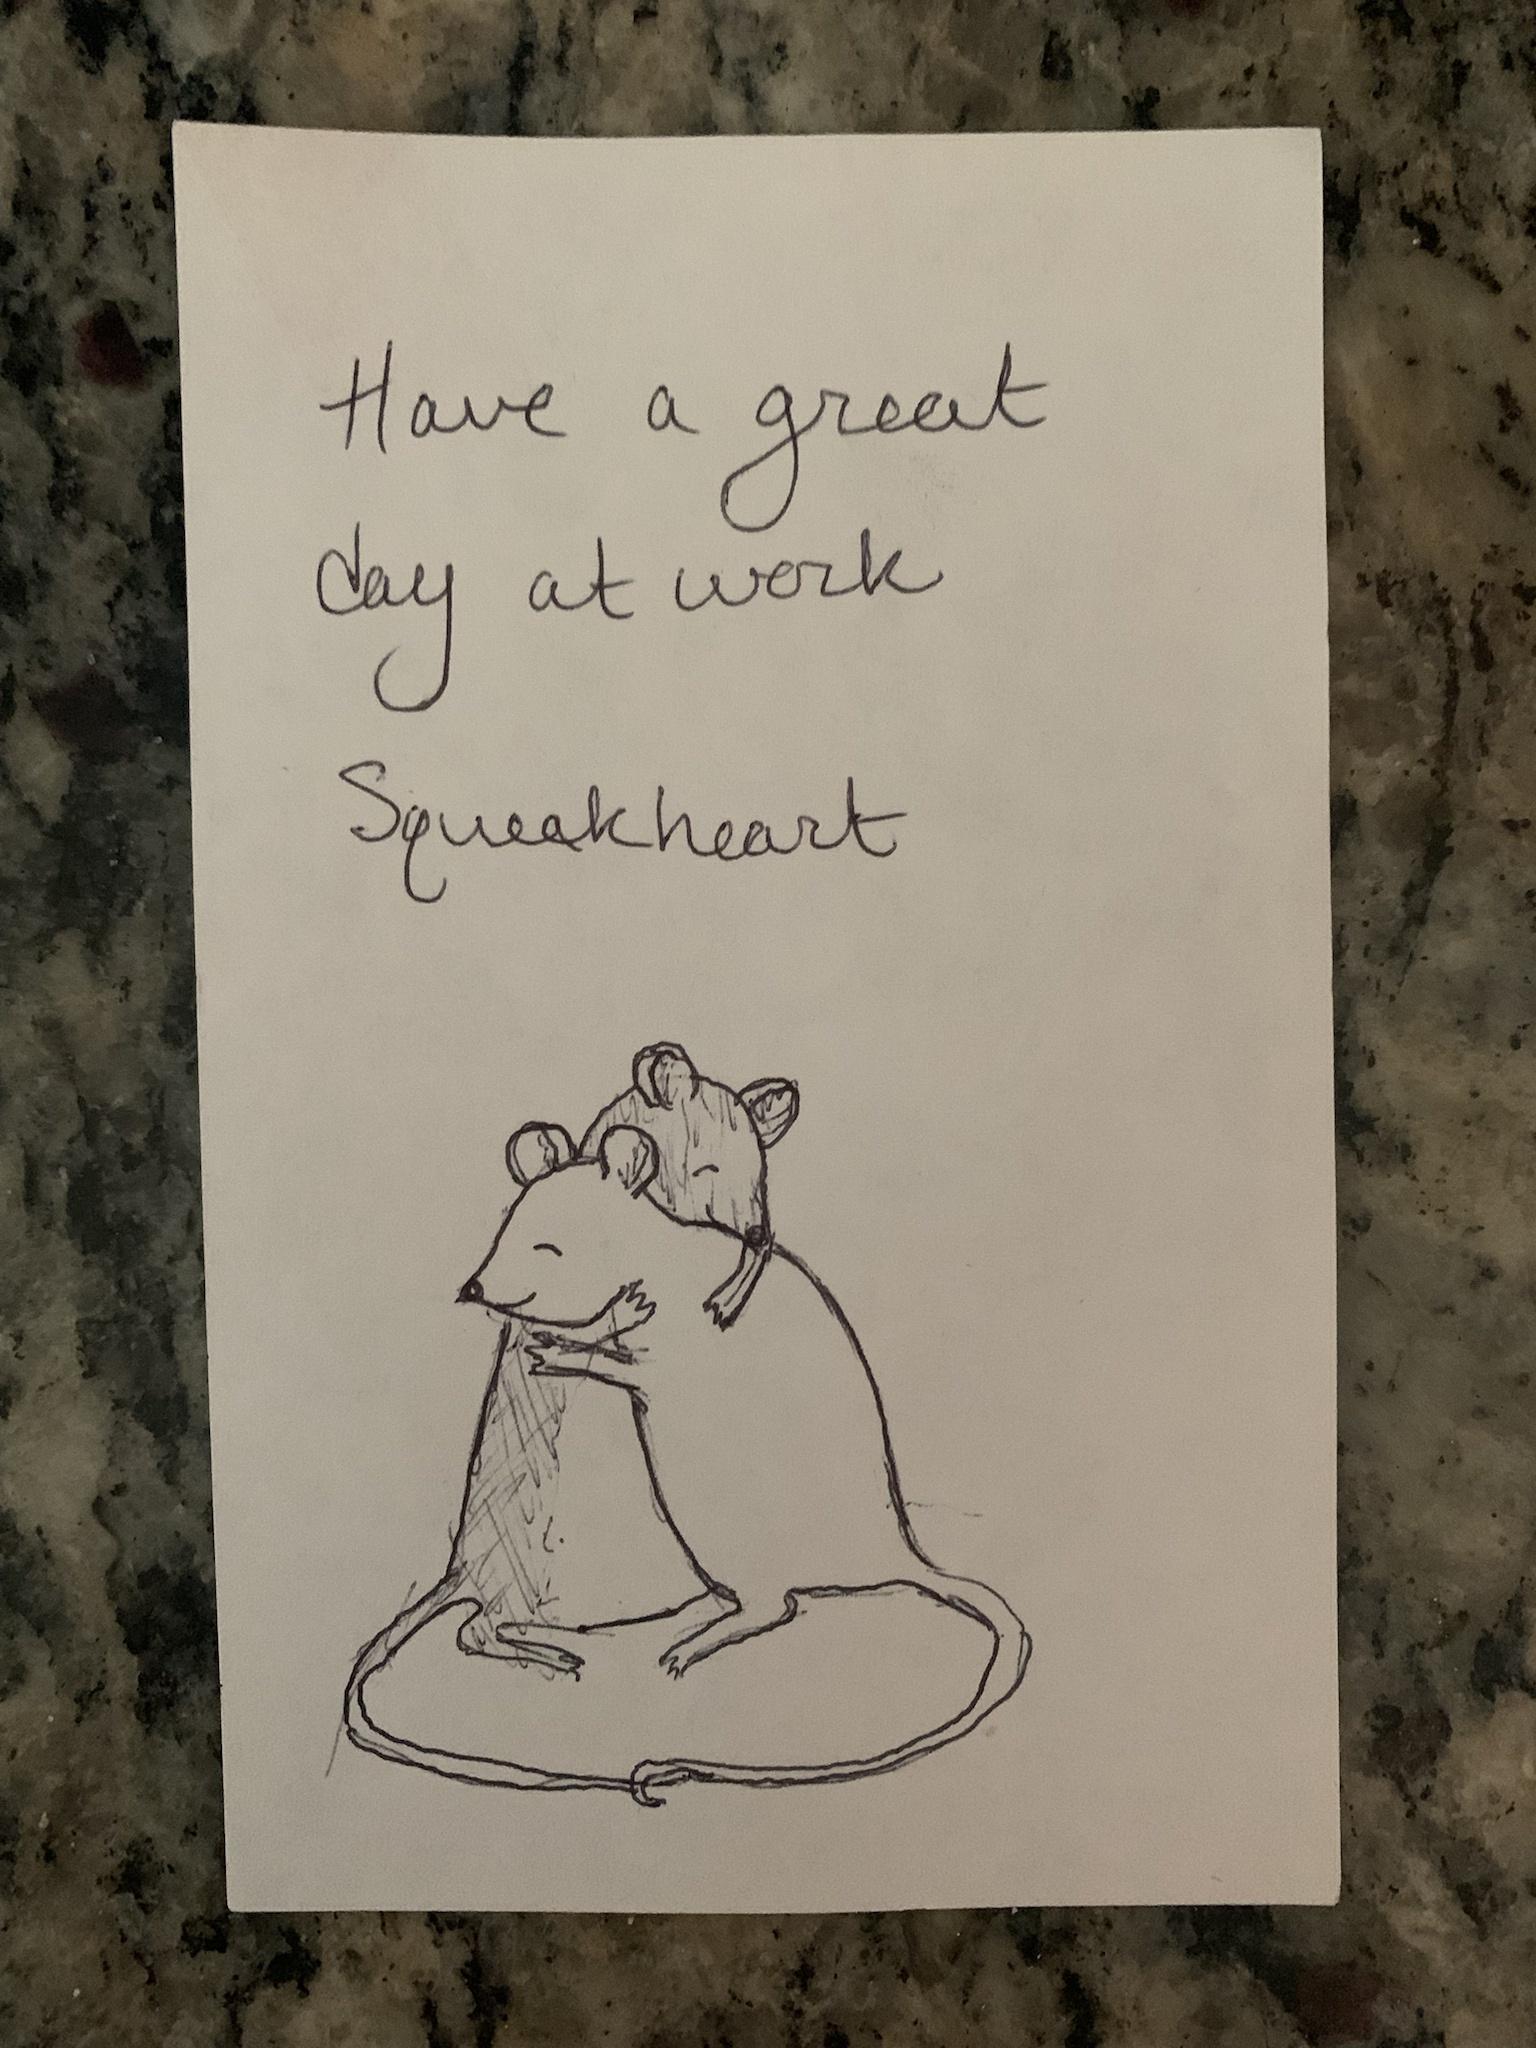 Have a great
day at work
Squeakheart